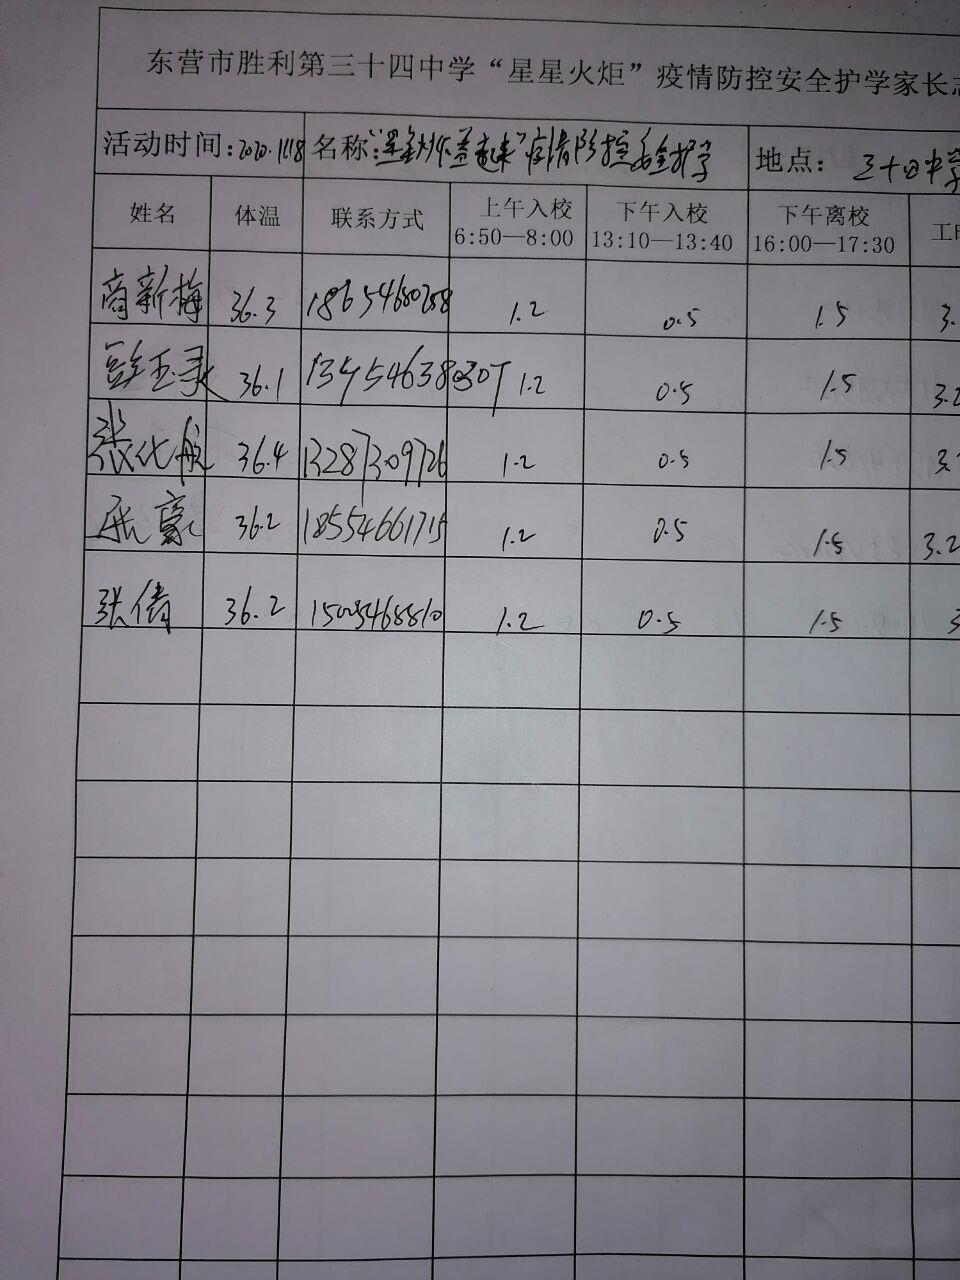 东营市胜利第三十四中学“星星火炬”疫情防控安全护学家长志
活动时间:2020.11.18 名称: 疫情防控安全护学 地点: 三十四中学
姓名 体温 联系方式 上午入校 下午入校 下午离校
6:50—8:00 13:10—13:40 16:00—17:30
商新梅 36.3 1.2 0.5 1.5 3.
彭玉录 36.1 1.2 0.5 1.5 3.2
张化航 36.4 13287309726 1.2 0.5 1.5 3.
张豪 36.2 18554661715 1.2 0.5 1.5 3.2
张倩 36.2 1.2 0.5 1.5 3